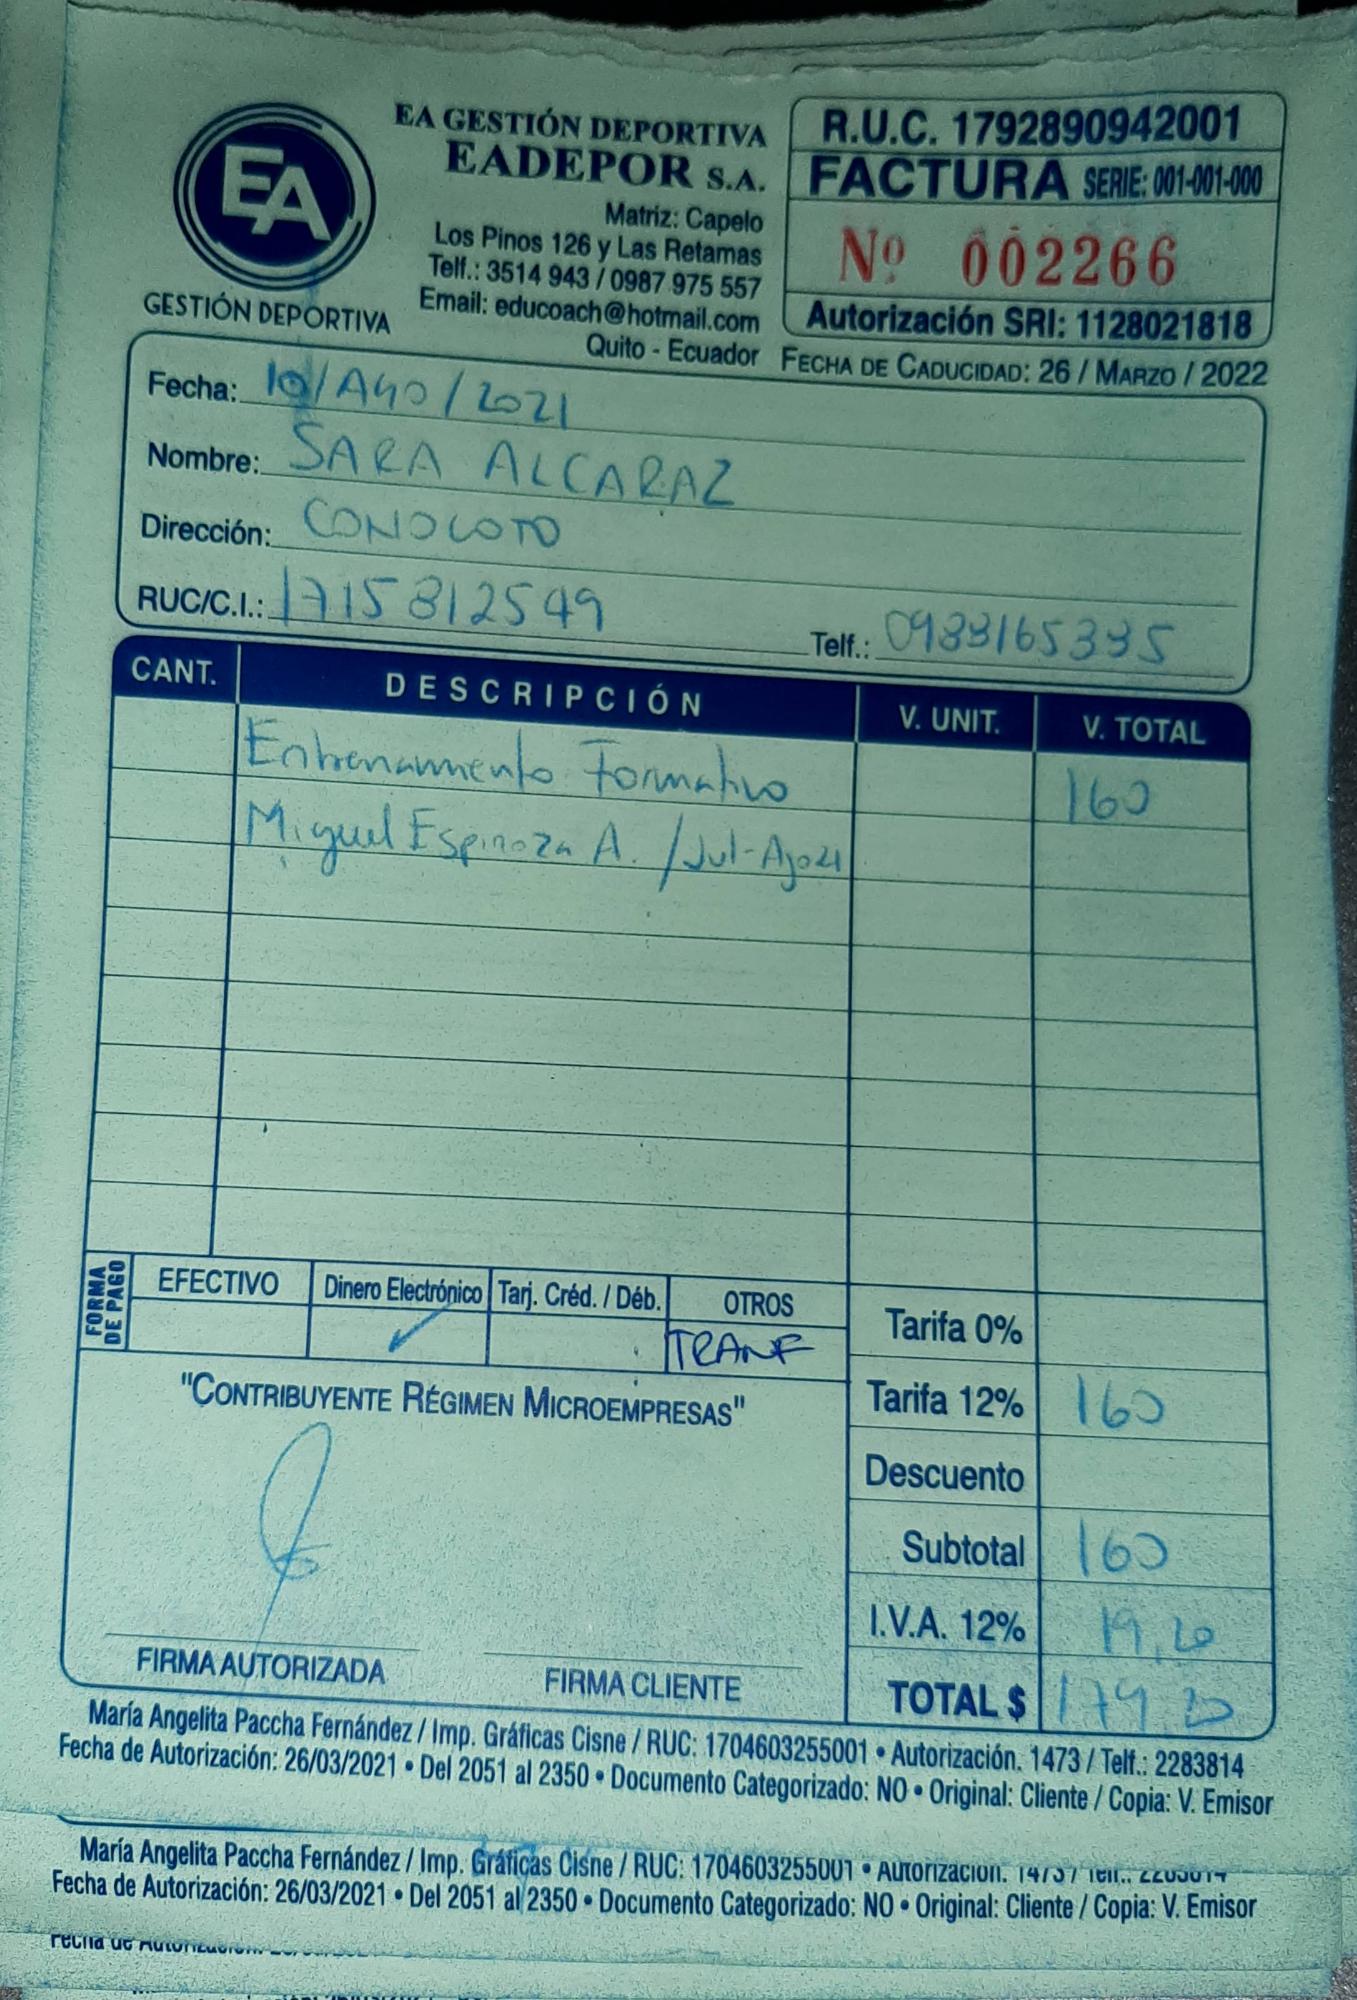 EA
GESTIÓN DEPORTIVA
EA GESTIÓN DEPORTIVA
EADEPOR S.A.
Matriz: Capelo
Los Pinos 126 y Las Retamas
Telf.: 3514 943 / 0987 975 557
Email: educoach@hotmail.com
Quito - Ecuador
R.U.C. 1792890942001
FACTURA SERIE: 001-001-000
Nº 002266
Autorización SRI: 1128021818
FECHA DE CADUCIDAD: 26 / MARZO / 2022
Fecha: 10/AGO/2021
Nombre: SARA ALCARAZ
Dirección: CONOCOTO
RUC/C.I.: 1715812549 Telf.:
CANT. DESCRIPCIÓN V. UNIT. V. TOTAL
Entrenamiento Formativo 160
Miguel Espinoza A. /Jul-Ago21
FORMA DE PAGO
EFECTIVO Dinero Electrónico Tarj. Créd. / Déb. OTROS
✓ TRANF
Tarifa 0%
"CONTRIBUYENTE RÉGIMEN MICROEMPRESAS"
Tarifa 12% 160
Descuento
Subtotal 160
I.V.A. 12% 19,20
TOTAL $ 179,20
FIRMA AUTORIZADA FIRMA CLIENTE
María Angelita Paccha Fernández / Imp. Gráficas Cisne / RUC: 1704603255001 • Autorización. 1473 / Telf.: 2283814
Fecha de Autorización: 26/03/2021 • Del 2051 al 2350 • Documento Categorizado: NO • Original: Cliente / Copia: V. Emisor
María Angelita Paccha Fernández / Imp. Gráficas Cisne / RUC: 1704603255001 • Autorización. 1473 / Telf.: 2283814
Fecha de Autorización: 26/03/2021 • Del 2051 al 2350 • Documento Categorizado: NO • Original: Cliente / Copia: V. Emisor
Fecha de Autorización: